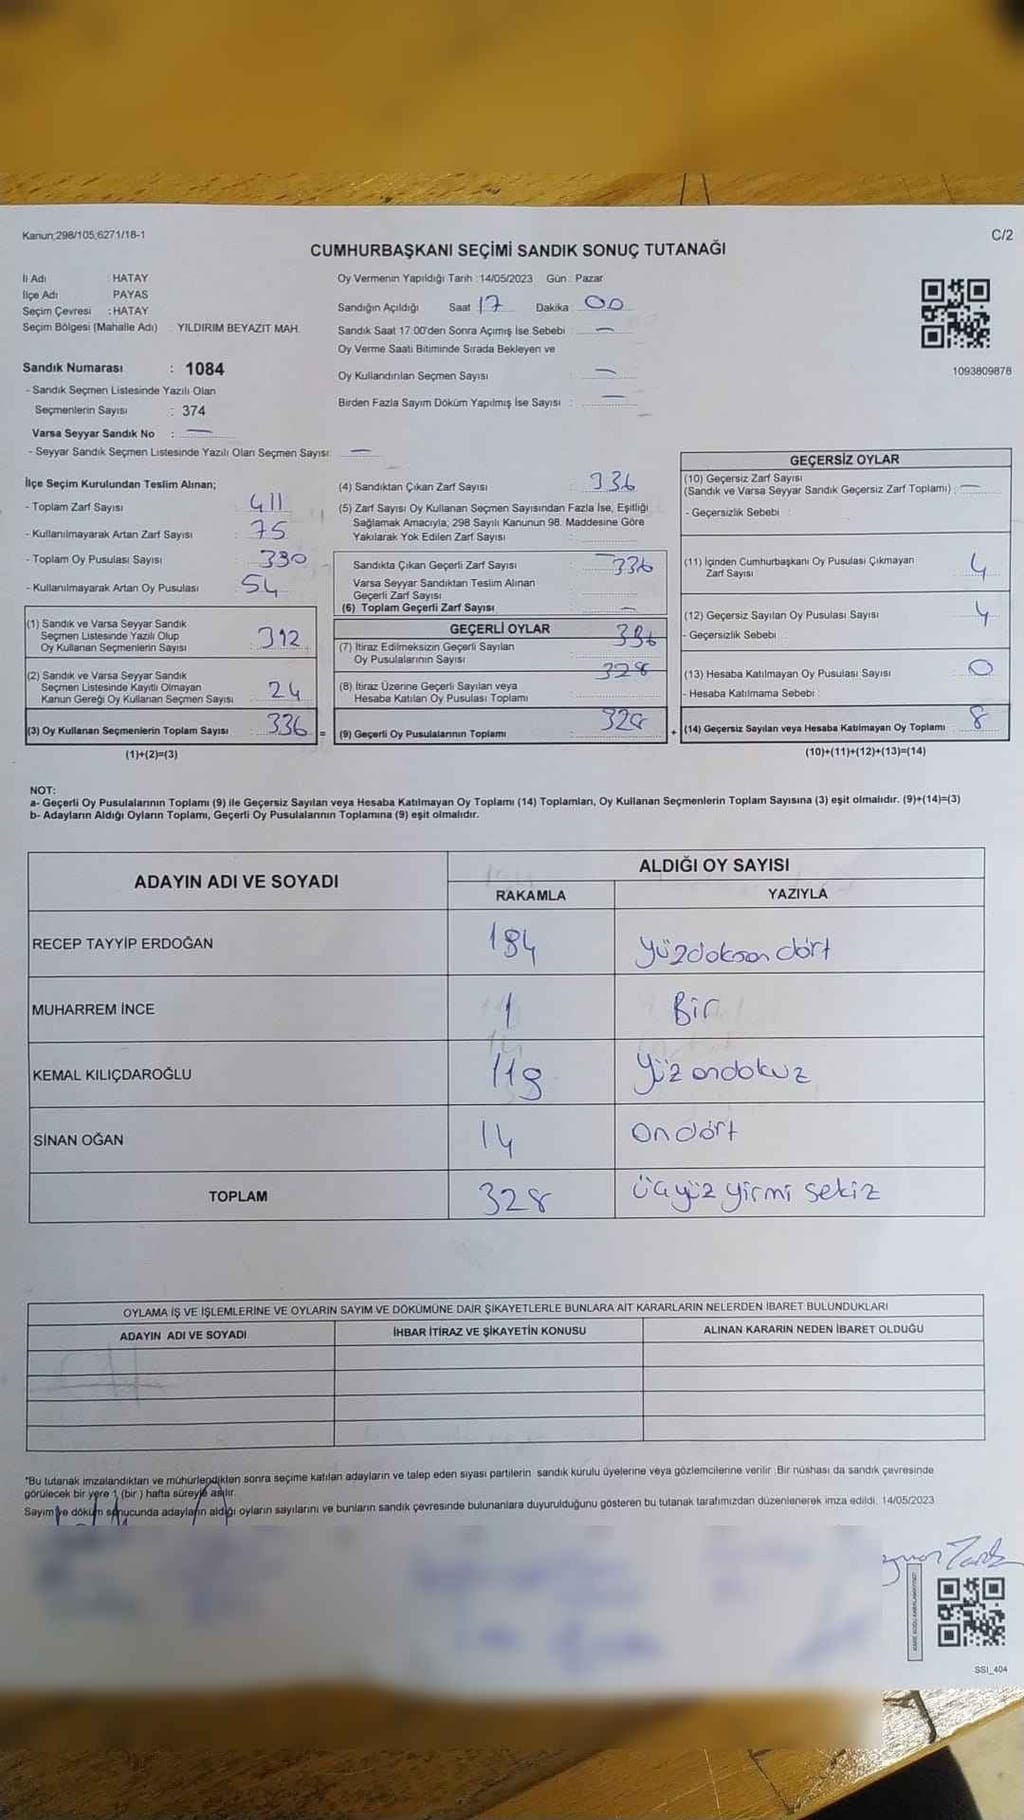 Kanun;298/105;6271/18-1
C/2
CUMHURBAŞKANI SEÇİMİ SANDIK SONUÇ TUTANAĞI
İl Adı : HATAY
İlçe Adı PAYAS
Seçim Çevresi : HATAY
Seçim Bölgesi (Mahalle Adı) : YILDIRIM BEYAZIT MAH.
Sandık Numarası : 1084
- Sandık Seçmen Listesinde Yazılı Olan
Seçmenlerin Sayısı : 374
Varsa Seyyar Sandık No : —
- Seyyar Sandık Seçmen Listesinde Yazılı Olan Seçmen Sayısı: —
Oy Vermenin Yapıldığı Tarih : 14/05/2023 Gün : Pazar
Sandığın Açıldığı Saat 17 Dakika 00
Sandık Saat 17:00'den Sonra Açımış İse Sebebi : —
Oy Verme Saati Bitiminde Sırada Bekleyen ve
Oy Kullandırılan Seçmen Sayısı : —
Birden Fazla Sayım Döküm Yapılmış İse Sayısı : —
1093809878
İlçe Seçim Kurulundan Teslim Alınan;
- Toplam Zarf Sayısı : 411
- Kullanılmayarak Artan Zarf Sayısı : 75
- Toplam Oy Pusulası Sayısı : 330
- Kullanılmayarak Artan Oy Pusulası : 54
(1) Sandık ve Varsa Seyyar Sandık
Seçmen Listesinde Yazılı Olup
Oy Kullanan Seçmenlerin Sayısı : 312
(2) Sandık ve Varsa Seyyar Sandık
Seçmen Listesinde Kayıtlı Olmayan
Kanun Gereği Oy Kullanan Seçmen Sayısı : 24
(3) Oy Kullanan Seçmenlerin Toplam Sayısı : 336 =
(1)+(2)=(3)
(4) Sandıktan Çıkan Zarf Sayısı : 336
(5) Zarf Sayısı Oy Kullanan Seçmen Sayısından Fazla İse, Eşitliği
Sağlamak Amacıyla; 298 Sayılı Kanunun 98. Maddesine Göre
Yakılarak Yok Edilen Zarf Sayısı : —
Sandıkta Çıkan Geçerli Zarf Sayısı : 336
Varsa Seyyar Sandıktan Teslim Alınan
Geçerli Zarf Sayısı : —
(6) Toplam Geçerli Zarf Sayısı : 336
GEÇERLİ OYLAR
(7) İtiraz Edilmeksizin Geçerli Sayılan
Oy Pusulalarının Sayısı : 328
(8) İtiraz Üzerine Geçerli Sayılan veya
Hesaba Katılan Oy Pusulası Toplamı :
(9) Geçerli Oy Pusulalarının Toplamı : 328 +
GEÇERSİZ OYLAR
(10) Geçersiz Zarf Sayısı
(Sandık ve Varsa Seyyar Sandık Geçersiz Zarf Toplamı) : —
- Geçersizlik Sebebi :
(11) İçinden Cumhurbaşkanı Oy Pusulası Çıkmayan
Zarf Sayısı : 4
(12) Geçersiz Sayılan Oy Pusulası Sayısı : 4
- Geçersizlik Sebebi :
(13) Hesaba Katılmayan Oy Pusulası Sayısı : 0
- Hesaba Katılmama Sebebi :
(14) Geçersiz Sayılan veya Hesaba Katılmayan Oy Toplamı : 8
(10)+(11)+(12)+(13)=(14)
NOT:
a- Geçerli Oy Pusulalarının Toplamı (9) ile Geçersiz Sayılan veya Hesaba Katılmayan Oy Toplamı (14) Toplamları, Oy Kullanan Seçmenlerin Toplam Sayısına (3) eşit olmalıdır. (9)+(14)=(3)
b- Adayların Aldığı Oyların Toplamı, Geçerli Oy Pusulalarının Toplamına (9) eşit olmalıdır.
ADAYIN ADI VE SOYADI ALDIĞI OY SAYISI
RAKAMLA YAZIYLA
RECEP TAYYİP ERDOĞAN 194 Yüzdoksan dört
MUHARREM İNCE 1 Bir
KEMAL KILIÇDAROĞLU 119 Yüz ondokuz
SİNAN OĞAN 14 Ondört
TOPLAM 328 Üçyüz yirmi sekiz
OYLAMA İŞ VE İŞLEMLERİNE VE OYLARIN SAYIM VE DÖKÜMÜNE DAİR ŞİKAYETLERLE BUNLARA AİT KARARLARIN NELERDEN İBARET BULUNDUKLARI
ADAYIN ADI VE SOYADI İHBAR İTİRAZ VE ŞİKAYETİN KONUSU ALINAN KARARIN NEDEN İBARET OLDUĞU
*Bu tutanak imzalandıktan ve mühürlendikten sonra seçime katılan adayların ve talep eden siyasi partilerin sandık kurulu üyelerine veya gözlemcilerine verilir. Bir nüshası da sandık çevresinde
görülecek bir yere 1 (bir) hafta süreyle asılır.
Sayım ve döküm sonucunda adayların aldığı oyların sayılarını ve bunların sandık çevresinde bulunanlara duyurulduğunu gösteren bu tutanak tarafımızdan düzenlenerek imza edildi. 14/05/2023
SSI_404